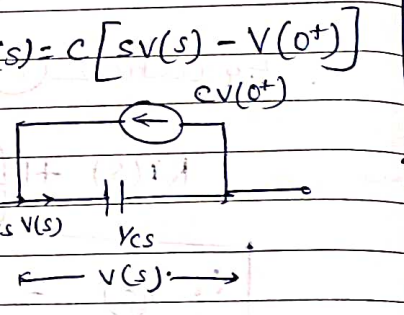 (s) = C[sV(s) - V(0⁺)]
CV(0⁺)
s V(s)
1/cs
V(s)